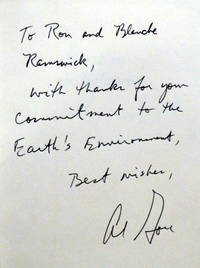 To Ron and Blanche
Ramswick,
with thanks for your
Commitment to the
Earth's Environment,
Best wishes,
Al Gore